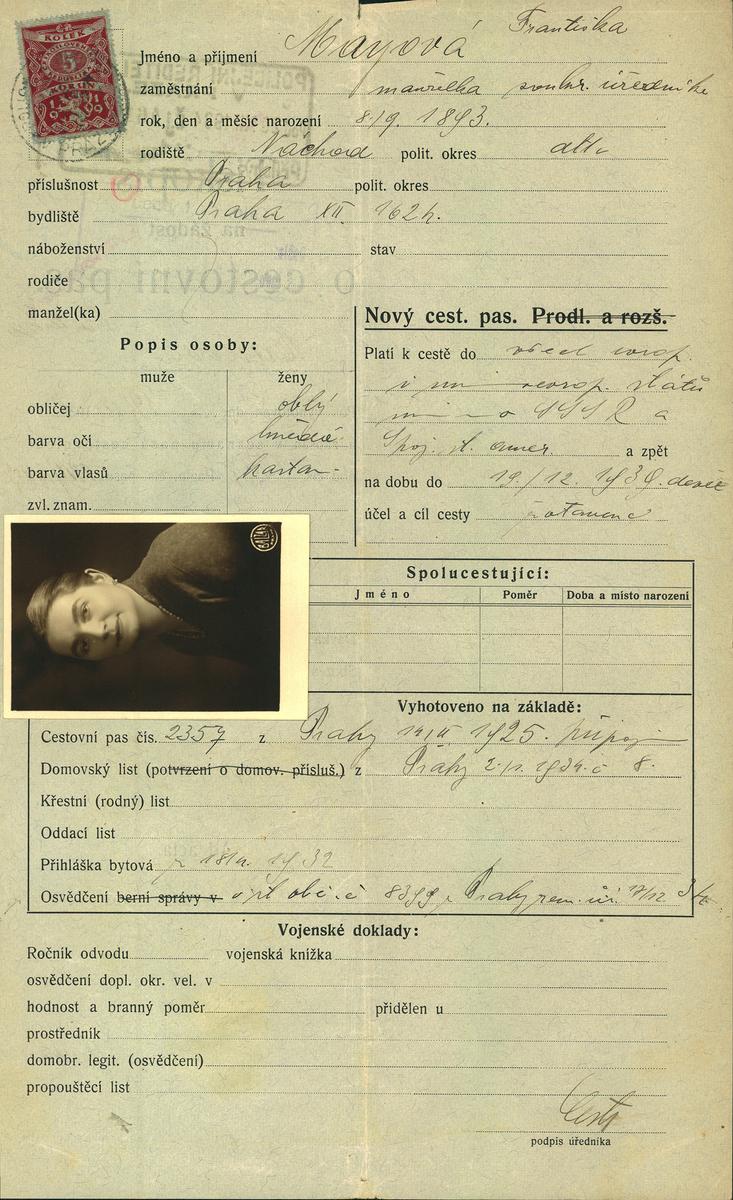 KOLEK
5
KORUN
Jméno a příjmení Mayová Františka
zaměstnání manželka soukr. úředníka
rok, den a měsíc narození 8./9. 1893.
rodiště Náchod polit. okres dtto
příslušnost Praha polit. okres
bydliště Praha XII. 162
náboženství stav
rodiče
manžel(ka)
Popis osoby:
muže ženy
obličej oblý
barva očí hnědé
barva vlasů kaštan-
zvl. znam.
Nový cest. pas. Prodl. a rozš.
Platí k cestě do všech evrop.
i mimoevrop. států
mimo SSSR a
Spoj. st. amer. a zpět
na dobu do 19./12. 1939.
účel a cíl cesty
Spolucestující:
Jméno Poměr Doba a místo narození
Vyhotoveno na základě:
Cestovní pas čís. 2357 z Prahy 1925.
Domovský list (potvrzení o domov. přísluš.) z Prahy 1934 č 8.
Křestní (rodný) list
Oddací list
Přihláška bytová 1932
Osvědčení berní správy v 8399 Prahy 17/12
Vojenské doklady:
Ročník odvodu vojenská knížka
osvědčení dopl. okr. vel. v
hodnost a branný poměr přidělen u
prostředník
domobr. legit. (osvědčení)
propouštěcí list
podpis úředníka